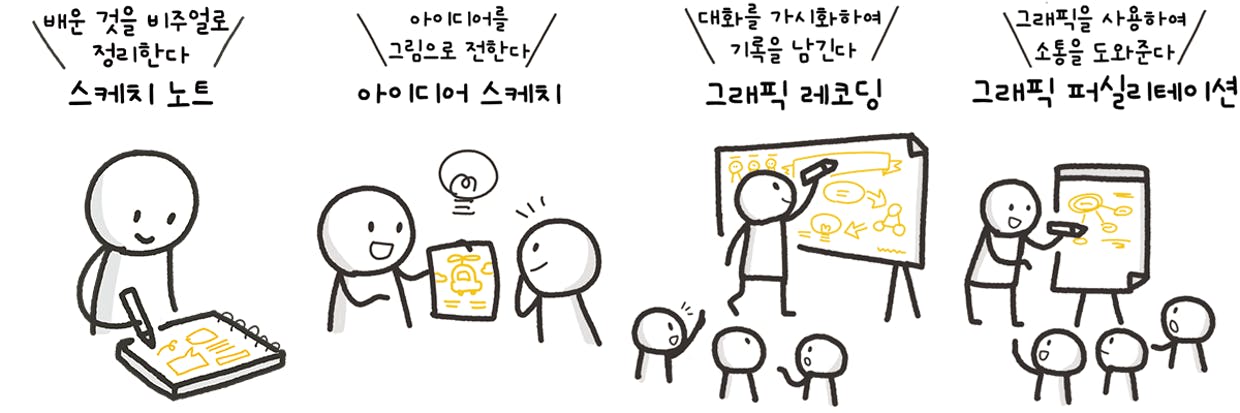 배운 것을 비주얼로
정리한다
스케치 노트
아이디어를
그림으로 전한다
아이디어 스케치
대화를 가시화하여
기록을 남긴다
그래픽 레코딩
그래픽을 사용하여
소통을 도와준다
그래픽 퍼실리테이션